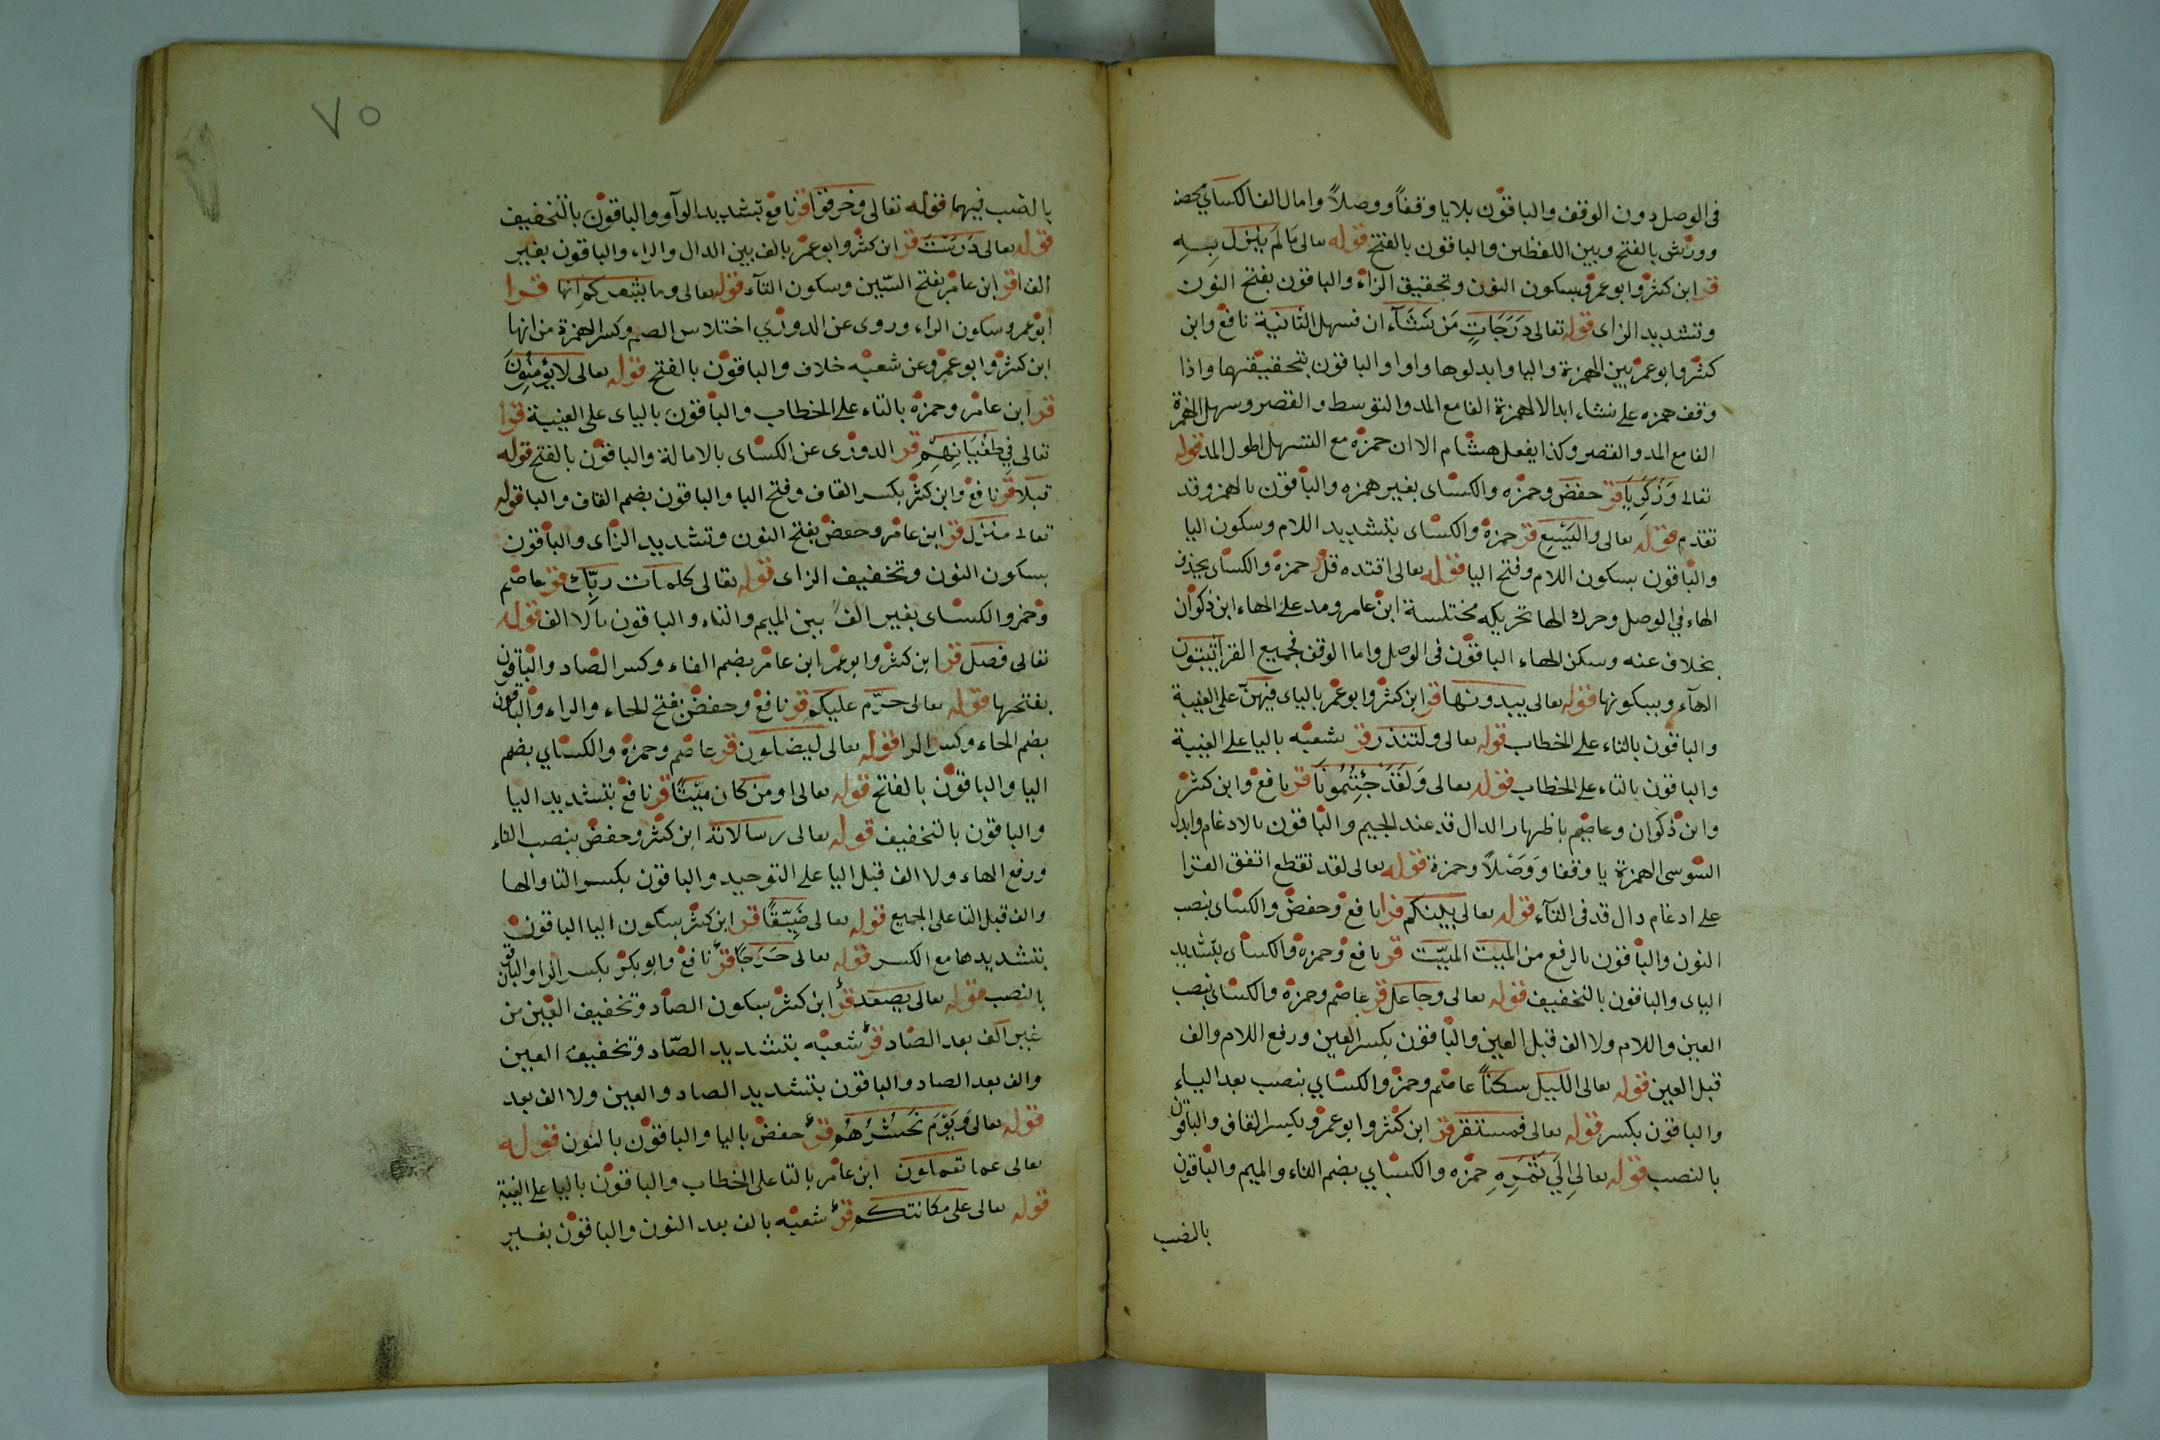 فى الوصل دون الوقف والباقون بلا يا وقفاً ووصلاً وامال الفا لكساي محضه
وورش بالفتح وبين اللفظين والباقون بالفتح قوله تعالى ما لم ينزل به
قر ابن كثير وابو عمرو بسكون النون وتخفيف الزاء والباقون بفتح النون
وتشديد الزاى قوله تعالى درجات من نشآء ان فسهل الثانية نافع وابن
كثير وابو عمر بين الهمزة واليا وابدلوها واوا والباقون بتحقيقها واذا
وقف حمزه على نشاء ابدالا لهمزة الفا مع المد والتوسط والقصر وسهل الهمزة
الفا مع المد والقصر وكذا يفعل هشام الا ان حمزه مع التسهيل اطول المد قوله
تعالى وزكريا قر حفص وحمزه والكساى بغير همزه والباقون بالهمز وقد
تقدم قوله تعالى واليسع قر حمزه والكساى بتشديد اللام وسكون اليا
والباقون بسكون اللام وفتح اليا قوله تعالى اقتده قل حمزه والكساى بحذف
الهاء في الوصل وحرك الها تحريكه مختلسة ابن عامر ومد على الهاء ابن ذكوان
بخلاف عنه وسكن الهاء الباقون فى الوصل واما الوقف فجميع القرا يثبتون
الهآء وبسكونها قوله تعالى يبدونها قر ابن كثير وابو عمر بالياى فيهن على الغيبة
والباقون بالتاء على الخطاب قوله تعالى ولتنذر قر شعبه باليا على الغيبة
والباقون بالتاء على الخطاب قوله تعالى ولقد جئتمونا قر نافع وابن كثير
وابن ذكوان وعاصم باظهار الدال قد عند الجيم والباقون بالادغام وابدل
السوسى الهمزة يا وقفا ووصلاً وحمزة قوله تعالى لقد تقطع اتفق القرا
على ادغام دال قد فى التآء قوله تعالى بينكم قرا نافع وحفص والكساى بنصب
النون والباقون بالرفع من الميت الميت قر نافع وحمزه والكساى بتشديد
الياى والباقون بالتخفيف قوله تعالى وجاعل قر عاصم وحمزة والكساى بنصب
العين واللام ولا الف قبل العين والباقون بكسر العين ورفع اللام والف
قبل العين قوله تعالى الليل سكناً عاصم وحمز والكساي بنصب بعد الياء
والباقون بكسر قوله تعالى فمستقر قر ابن كثير وابو عمرو بكسر القاف والباقون
بالنصب قوله تعالى الى ثمره حمزه والكساي بضم الثاء والميم والباقون
بالنصب
٧٥
بالنصب فيهما قوله تعالى وخرقوا قر نافع بتشديد الوآو والباقون بالتخفيف
قوله تعالى درست قر ابن كثير وابو عمر بالف بين الدال والراء والباقون بغير
الف قر ابن عامر بفتح السين وسكون التآء قوله تعالى وما يشعركم انها قرا
ابو عمرو سكون الراء وروى عن الدوري اختلاس الضم وكسر الهمزة من انها
ابن كثير وابو عمرو وعن شعبه خلاف والباقون بالفتح قوله تعالى لا يؤمنون
قر ابن عامر وحمزه بالتاء على الخطاب والباقون بالياى على الغيبة قوا
تعالى في طغيانهم قر الدورى عن الكساى بالامالة والباقون بالفتح قوله
قبلا قر نافع وابن كثير بكسر القاف وفتح البا والباقون بضم القاف والبا قوله
تعالى منزل قر ابن عامر وحفص بفتح النون وتشديد الزاى والباقون
بسكون النون وتخفيف الزاى قوله تعالى كلمات ربك قر عاصم
وحمز والكساى بغير الف بين الميم والتاء والباقون بالا الف قوله
تعالى فصل قر ابن كثير وابو عمر ابن عامر بضم الفاء وكسر الصاد والباقون
بفتحها قوله تعالى حرم عليكم قر نافع وحفص بفتح الحاء والراء والباقون
بضم الحاء وكسر الرا قوله تعالى ليضلون قر عاصم وحمزه والكساي بضم
اليا والباقون بالفتح قوله تعالى او من كان ميتا قر نافع بتشديد اليا
والباقون بالتخفيف قوله تعالى رسالاته ابن كثير وحفص بنصب التاء
ورفع الهاء ولا الف قبل اليا على التوحيد والباقون بكسر التا والها
والف قبل التا على الجميع قوله تعالى ضيقاً قر ابن كثير بسكون اليا الباقون
بتشديدها مع الكسر قوله تعالى حرجاً قر نافع وابو بكر بكسر الرا والباقون
بالنصب قوله تعالى يصعد قر ابن كثير بسكون الصاد وتخفيف العين من
غير الف بعد الصاد قر شعبه بتشديد الصاد وتخفيف العين
والف بعد الصاد والباقون بتشديد الصاد والعين ولا الف بعد
قوله تعالى ويوم نحشرهم قر حفص باليا والباقون بالنون قوله
تعالى عما تعملون ابن عامر بالتا على الخطاب والباقون باليا على الغيبة
قوله تعالى على مكانتكم قر شعبه بالف بعد النون والباقون بغير